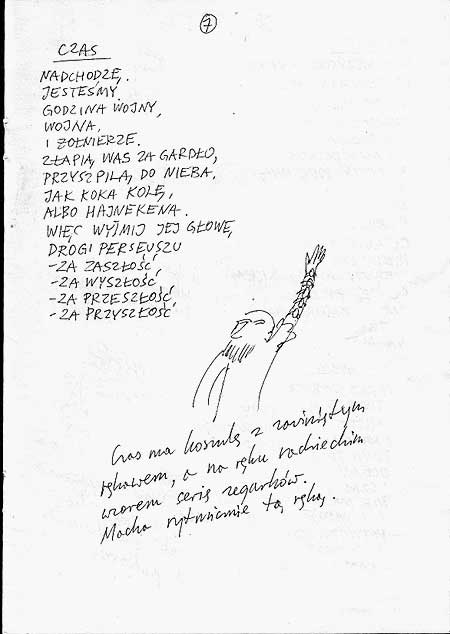 7
CZAS
NADCHODZĘ.
JESTEŚMY.
GODZINA WOJNY,
WOJNA,
I ŻOŁNIERZE.
ZŁAPIĄ WAS ZA GARDŁO,
PRZYSZPILĄ DO NIEBA,
JAK KOKA KOLĘ,
ALBO HAJNEKENA.
WIĘC WYJMIJ JEJ GŁOWĘ,
DROGI PERSEUSZU
-ZA ZASZŁOŚĆ,
-ZA WYSZŁOŚĆ,
-ZA PRZESZŁOŚĆ,
-ZA PRZYSZŁOŚĆ
Czas ma koszulę z zawiniętym
rękawem, a na ręku radzieckim
wzorem serię zegarków.
Macha rytmicznie tą ręką.